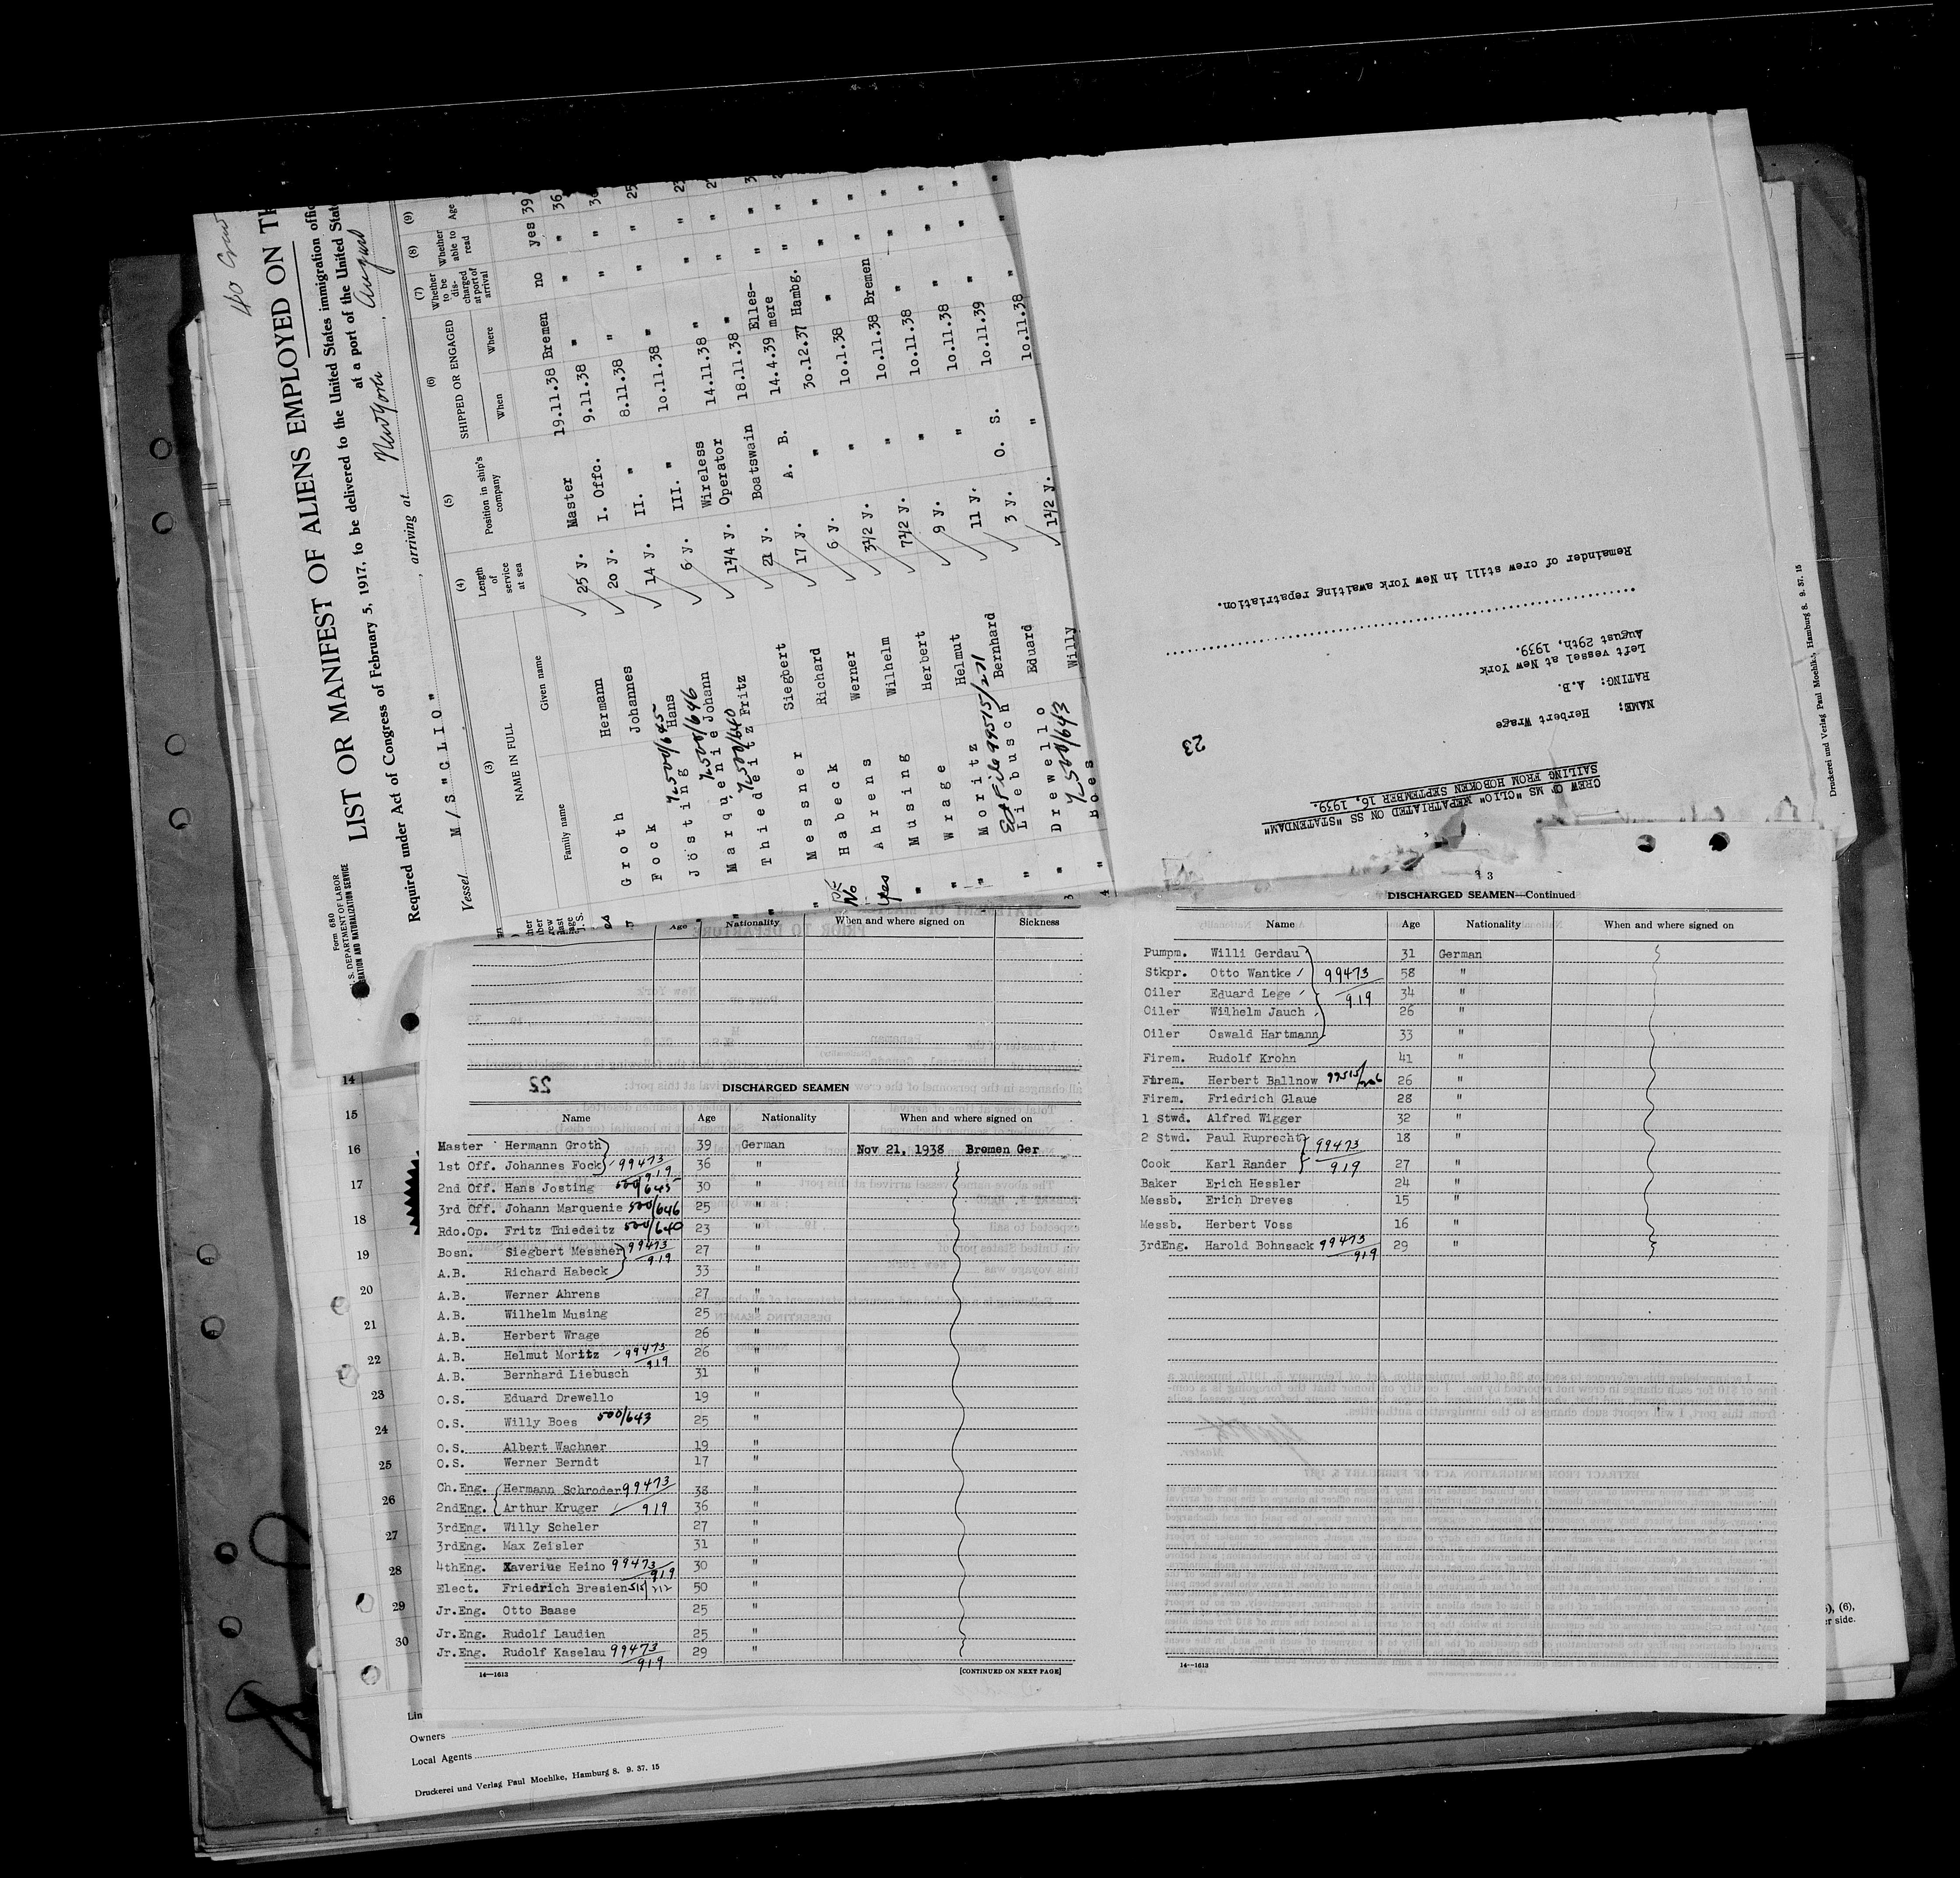 40 Crew
Form 680
U.S. DEPARTMENT OF LABOR
IMMIGRATION AND NATURALIZATION SERVICE
LIST OR MANIFEST OF ALIENS EMPLOYED ON TH
Required under Act of Congress of February 5, 1917, to be delivered to the United States immigration offic
at a port of the United Stat
Vessel M/S "CLIO", arriving at New York, August
(3) (4) (5) (6) (7) (8) (9)
NAME IN FULL
Family name Given name
Length of service at sea
Position in ship's company
SHIPPED OR ENGAGED
When Where
Whether to be discharged at port of arrival
Whether able to read
Age
Groth Hermann 25 y. Master 19.11.38 Bremen no yes 39
Fock Johannes 20 y. I. Offc. 9.11.38 " " " 36
500/645
Jösting Hans 14 y. II. " 8.11.38 " " "
500/646
Marquenie Johann 6 y. III. " 10.11.38 " " " 25
500/640
Thiedeitz Fritz 1 1/4 y. Wireless Operator 14.11.38 " " "
Messner Siegbert 21 y. Boatswain 18.11.38 " " "
Habeck Richard 17 y. A. B. 14.4.39 Ellesmere " "
Ahrens Werner 6 y. " 30.12.37 Hambg. " "
Musing Wilhelm 3 1/2 y. " 10.1.38 " " "
Wrage Herbert 7 1/2 y. " 10.11.38 Bremen " "
Moritz Helmut 9 y. " 10.11.38 " " "
File 99515/271
Liebusch Bernhard 11 y. " 10.11.38 " " "
Drewello Eduard 3 y. O. S. 10.11.39 " " "
500/643
Boes Willy 1 1/2 y. " 10.11.38 " " "
CREW OF MS "CLIO" REPATRIATED ON SS "STATENDAM"
SAILING FROM HOBOKEN SEPTEMBER 16, 1939.
23
NAME: Herbert Wrage
RATING: A.B.
Left vessel at New York
August 29th, 1939.
Remainder of crew still in New York awaiting repatriation.
Druckerei und Verlag Paul Moehlke, Hamburg 8. 9. 37. 15
Age Nationality When and where signed on Sickness
22
DISCHARGED SEAMEN
Name Age Nationality When and where signed on
Master Hermann Groth 39 German Nov 21, 1938 Bremen Ger
1st Off. Johannes Fock 99473/919 36 "
2nd Off. Hans Josting 500/645 30 "
3rd Off. Johann Marquenie 500/646 25 "
Rdo.Op. Fritz Thiedeitz 500/640 23 "
Bosn. Siegbert Messner 99473/919 27 "
A.B. Richard Habeck 33 "
A.B. Werner Ahrens 27 "
A.B. Wilhelm Musing 25 "
A.B. Herbert Wrage 26 "
A.B. Helmut Moritz 99473/919 26 "
A.B. Bernhard Liebusch 31 "
O.S. Eduard Drewello 19 "
O.S. Willy Boes 500/643 25 "
O.S. Albert Wachner 19 "
O.S. Werner Berndt 17 "
Ch.Eng. Hermann Schroder 99473 38 "
2ndEng. Arthur Kruger 919 36 "
3rdEng. Willy Scheler 27 "
3rdEng. Max Zeisler 31 "
4thEng. Xaverius Heino 99473/919 30 "
Elect. Friedrich Bresien 515/212 50 "
Jr.Eng. Otto Baase 25 "
Jr.Eng. Rudolf Laudien 25 "
Jr.Eng. Rudolf Kaselau 99473/919 29 "
14—1613 [CONTINUED ON NEXT PAGE]
3
DISCHARGED SEAMEN—Continued
Name Age Nationality When and where signed on
Pumpm. Willi Gerdau 31 German
Stkpr. Otto Wantke 99473 58 "
Oiler Eduard Lege 919 34 "
Oiler Wilhelm Jauch 26 "
Oiler Oswald Hartmann 33 "
Firem. Rudolf Krohn 41 "
Firem. Herbert Ballnow 99515/206 26 "
Firem. Friedrich Glaue 28 "
1 Stwd. Alfred Wigger 32 "
2 Stwd. Paul Ruprecht 99473 18 "
Cook Karl Rander 919 27 "
Baker Erich Hessler 24 "
Messb. Erich Dreves 15 "
Messb. Herbert Voss 16 "
3rdEng. Harold Bohnsack 99473/919 29 "
14—1613
14
15
16
17
18
19
20
21
22
23
24
25
26
27
28
29
30
Lin
Owners
Local Agents
Druckerei und Verlag Paul Moehlke, Hamburg 8. 9. 37. 15
), (6),
r side.